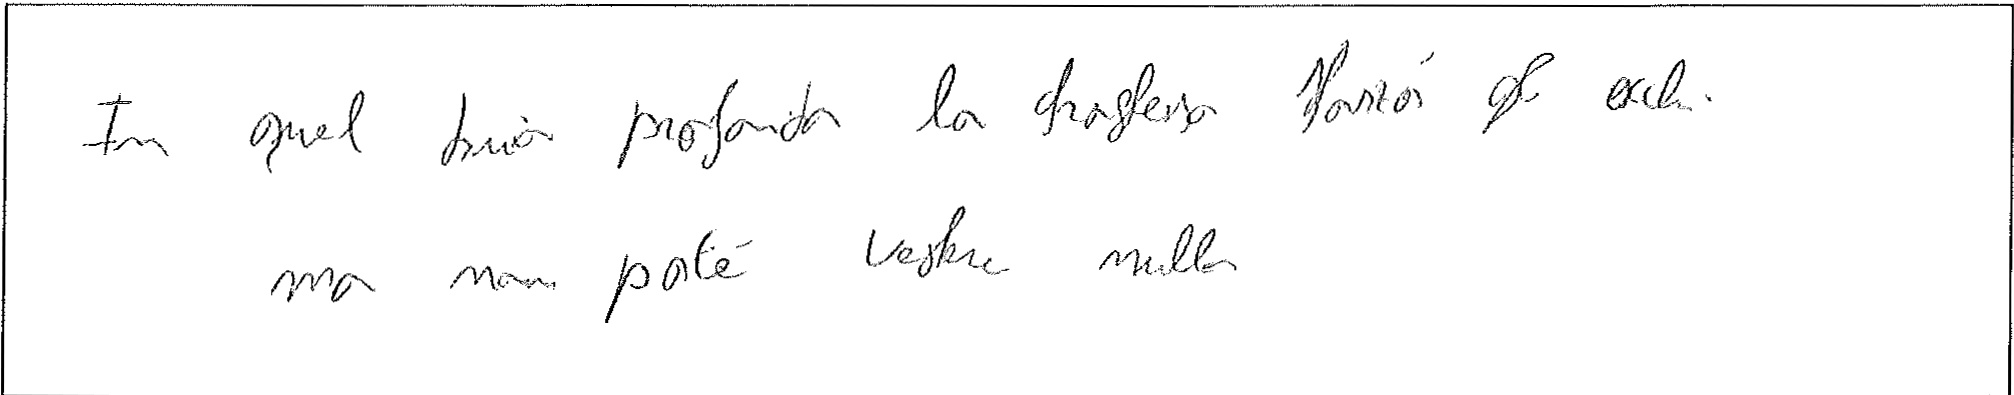 In quel buio profondo la dragessa sforzò gli occhi.
ma non poté vedere nulla